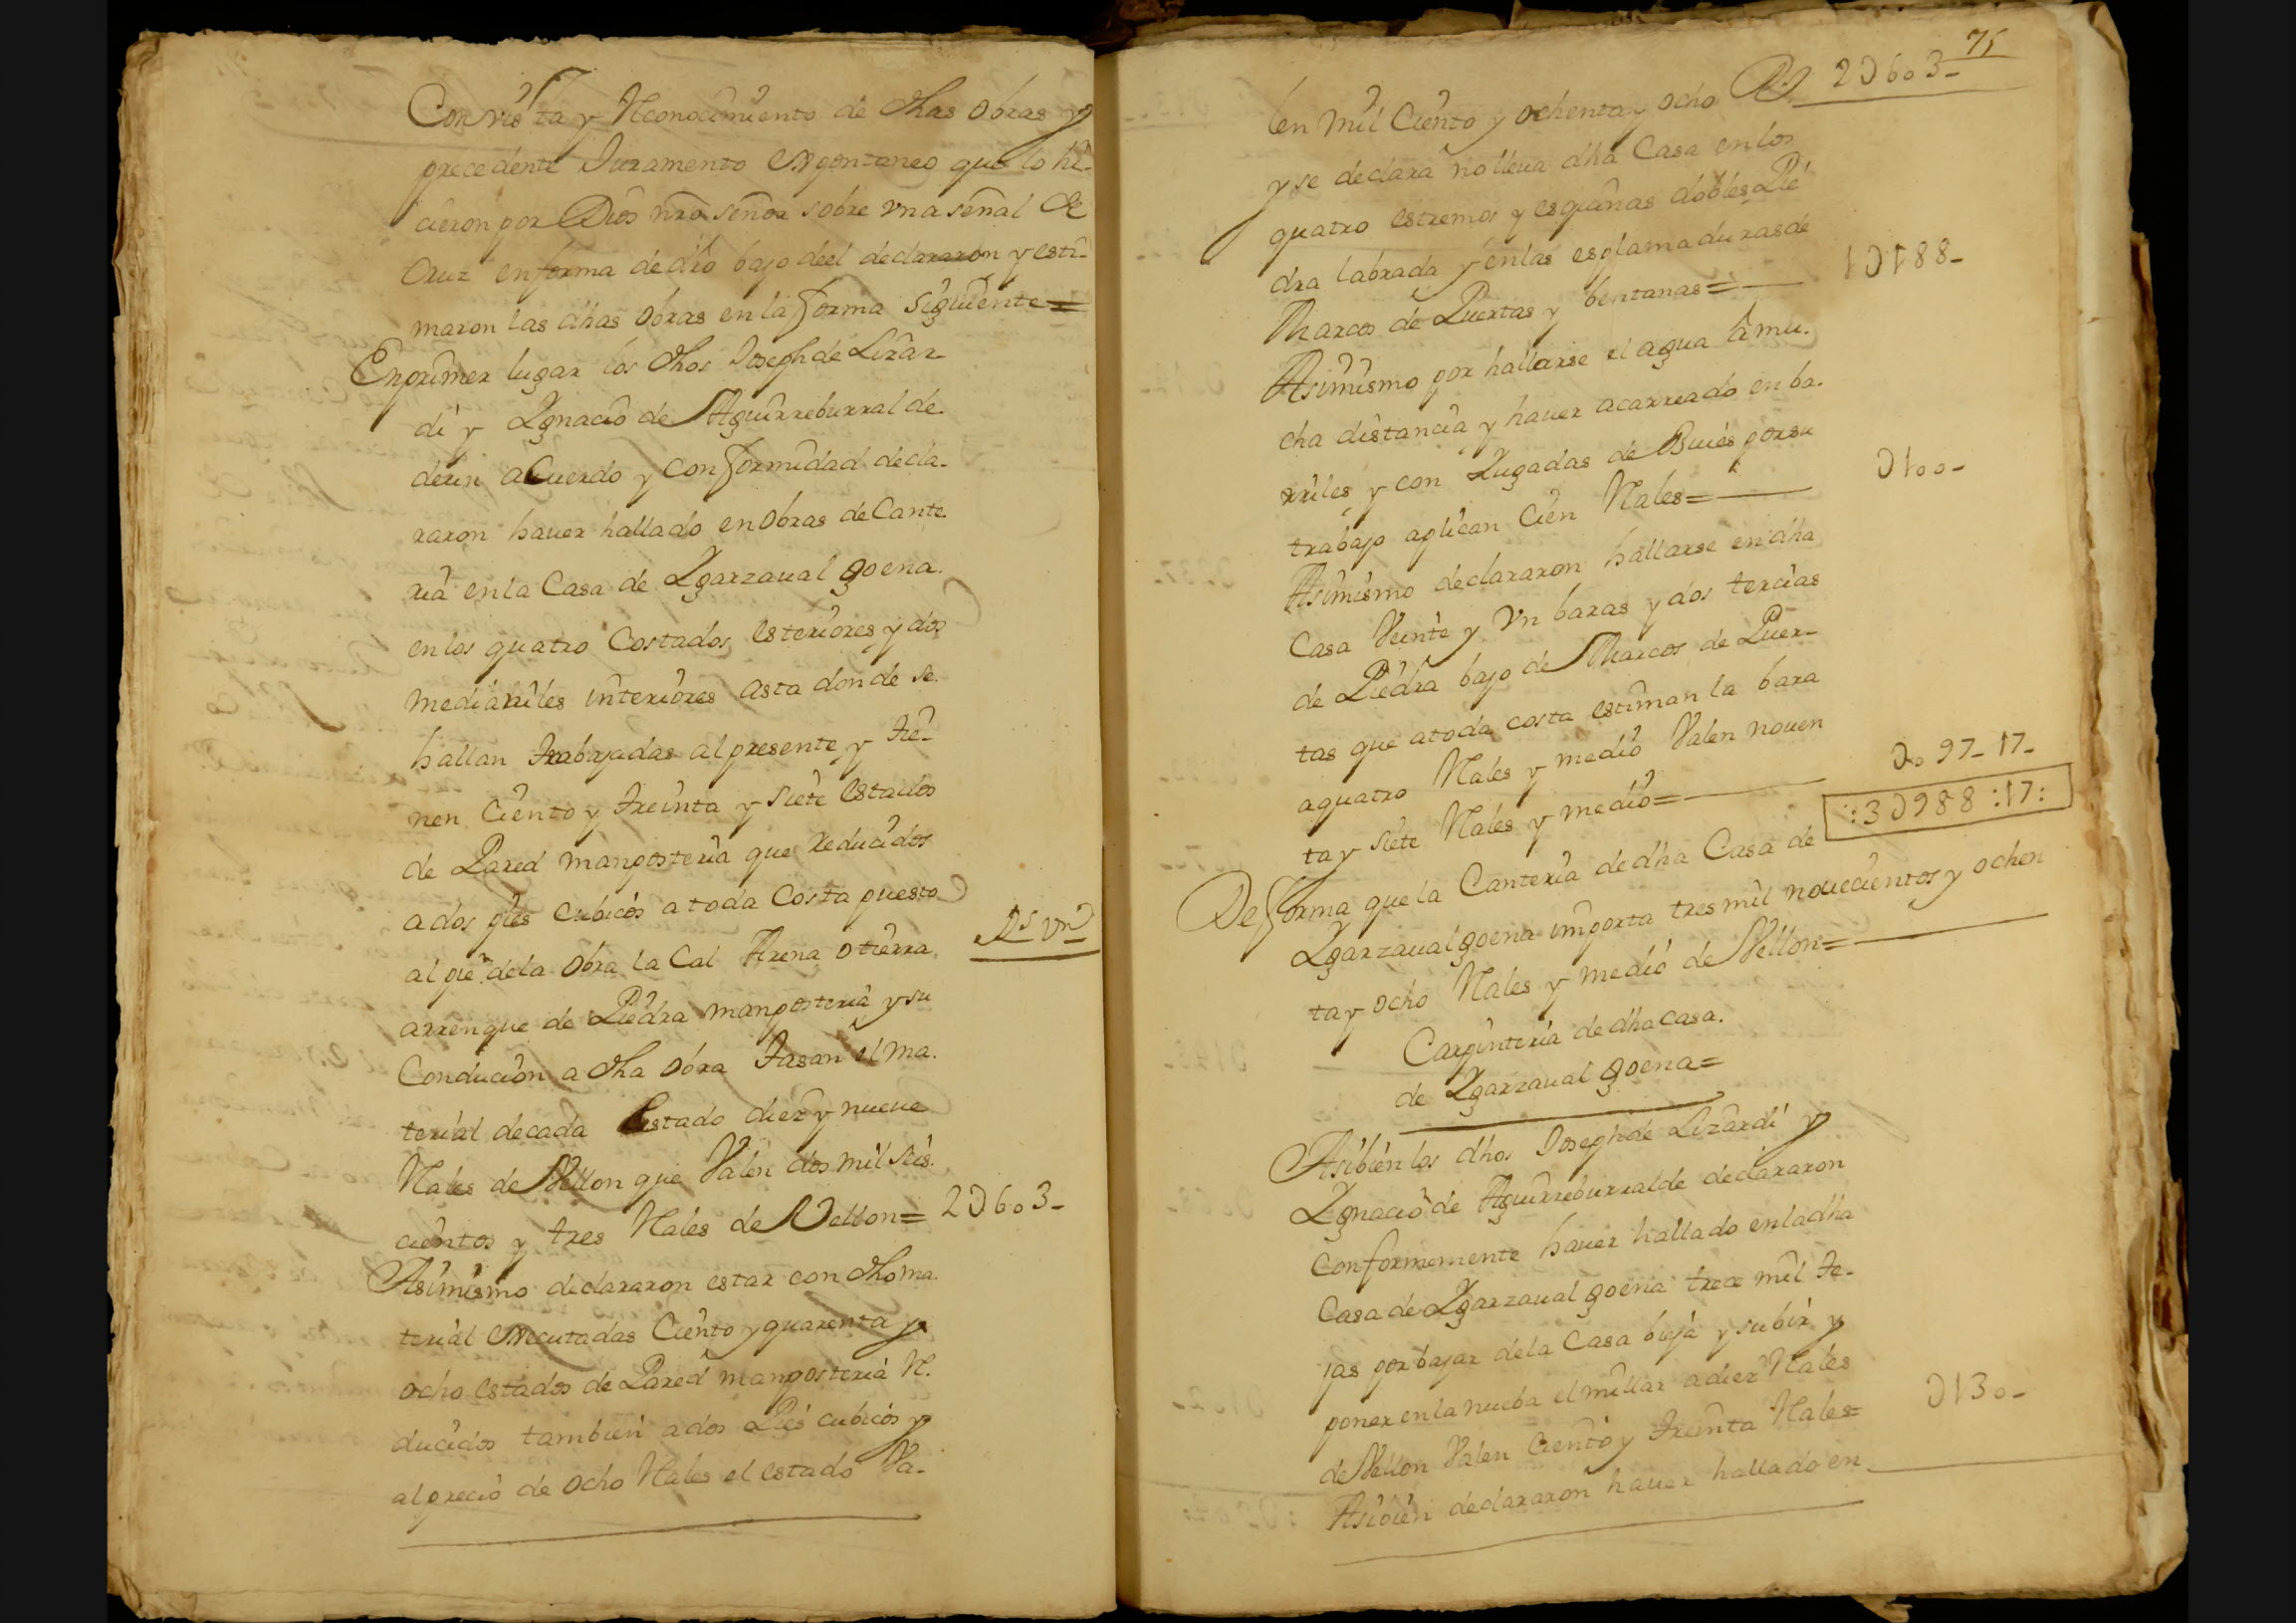 Con vista y Rconocimiento de dhas obras y
precedente Juramento expontaneo que lo hi-
cieron por Dios nro señor sobre vna señal de
Cruz en forma de dro bajo deel declararon y esti-
maron las dhas obras en la forma siguiente =
En primer lugar los dhos Joseph de Lizar
di y Ygnacio de Aguirreburralde
deun aCuerdo y conformidad decla-
raron hauer hallado en obras de Cante
ria en la Casa de Ygarzaual goena
en los quatro Costados esteriores y dos
mediarriles interiores asta donde se
hallan trabajadas al presente y tie-
nen Ciento y treinta y siete estados
de Pared manposteria que Reducidos
a dos pies cubicos a toda Costa puesto
al pie de la obra la Cal Arena o tierra
arrenque de Piedra manposteria y su
Conducion a dha obra tasan el ma.
terial de cada estado diez y nueue
Rales de Vellon que Valen dos mil seis
cientos y tres Rales de Vellon =
Asimismo declararon estar con dho ma.
terial executadas Ciento y quarenta y
ocho estados de Pared manposteria R.
ducidos tambien a dos Pies cubicos y
al precio de ocho Rales el estado Va-
Rs Vn
2D603-
75
Rs 2D603-
len mil Ciento y ochenta y ocho
y se declara no lleua dha Casa en los
quatro estremos y esquinas dobles Pie
dra labrada y en las esplamaduras de
Marcos de Puertas y bentanas =
1D188-
Asimismo por hallarse el agua a mu.
cha distancia y hauer acarreado en ba.
rriles y con Yugadas de Bues por su
trabajo aplican Cien Rales =
D100-
Asimismo declararon hallarse en dha
Casa Veinte y Vn baras y dos tercias
de Piedra bajo de Marcos de Puer-
tas que a toda costa estiman la bara
a quatro Rales y medio Valen nouen
ta y siete Rales y medio =
Do97-17-
:3D988:17:
De forma que la Canteria de dha Casa de
Ygarzaualgoena importa tres mil nouecientos y ochen
ta y ocho Rales y medio de Vellon =
Carpinteria de dha casa.
de Ygarzaual goena =
Asibien los dhos Joseph de Lizardi y
Ygnacio de Aguirreburralde declararon
conformemente hauer hallado en la dha
Casa de Ygarzaual goena trece mil te-
jas por bajar de la Casa bieja y subir y
poner en la nueba el millar a diez Rales
de Vellon Valen Ciento y treinta Rales =
D130-
Asibien declararon hauer hallado en